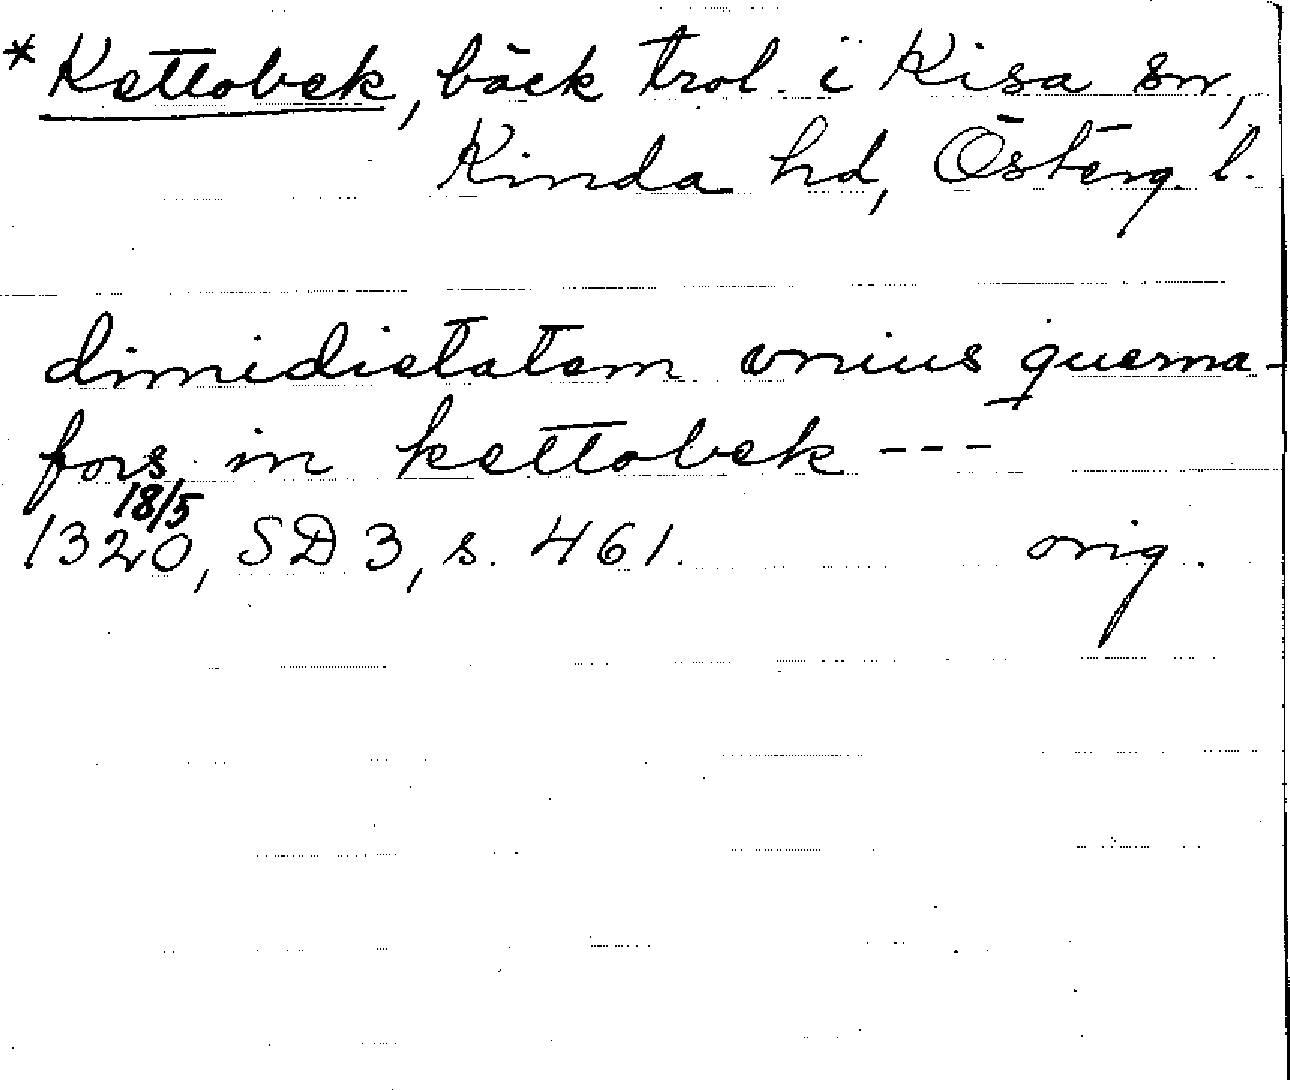 *Kettobek, bäck trol. i Kisa sn,
Kinda hd, Österg. l.
dimidietatem vnius querna-
fors in kettobek ---
18/5
1320, SD 3, s. 461. orig.